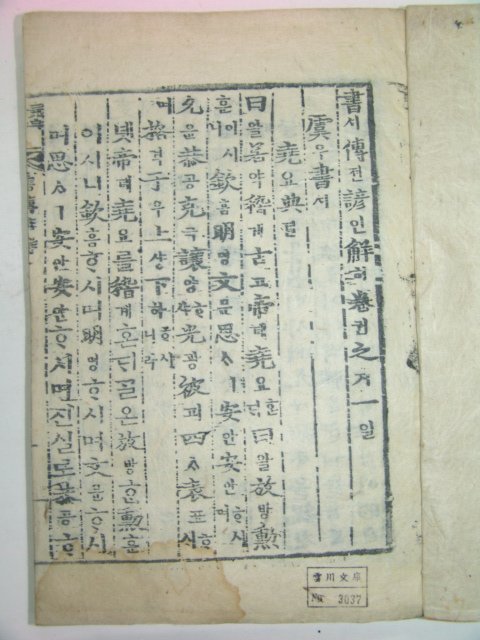 書셔傳젼諺언解ᄒᆡ卷권之지一일
虞우書셔
堯요典뎐
曰왈若약稽계古고帝뎨堯요혼ᄃᆡ曰왈放방勳
훈이시니欽흠明명文문思ᄉᆞㅣ安안安안ᄒᆞ시며
允윤恭공克극讓양ᄒᆞ샤光광被피四ᄉᆞ表표ᄒᆞ시
며格격于우上샹下하ᄒᆞ시니라
녯帝뎨堯요를稽계혼ᄃᆡᄀᆞᆯ온放방ᄒᆞᆫ勳훈
이시니欽흠ᄒᆞ시며明명ᄒᆞ시며文문ᄒᆞ시
며思ᄉᆞㅣ安안安안ᄒᆞ시며진실로恭공ᄒᆞ
雲川文庫
No. 3037